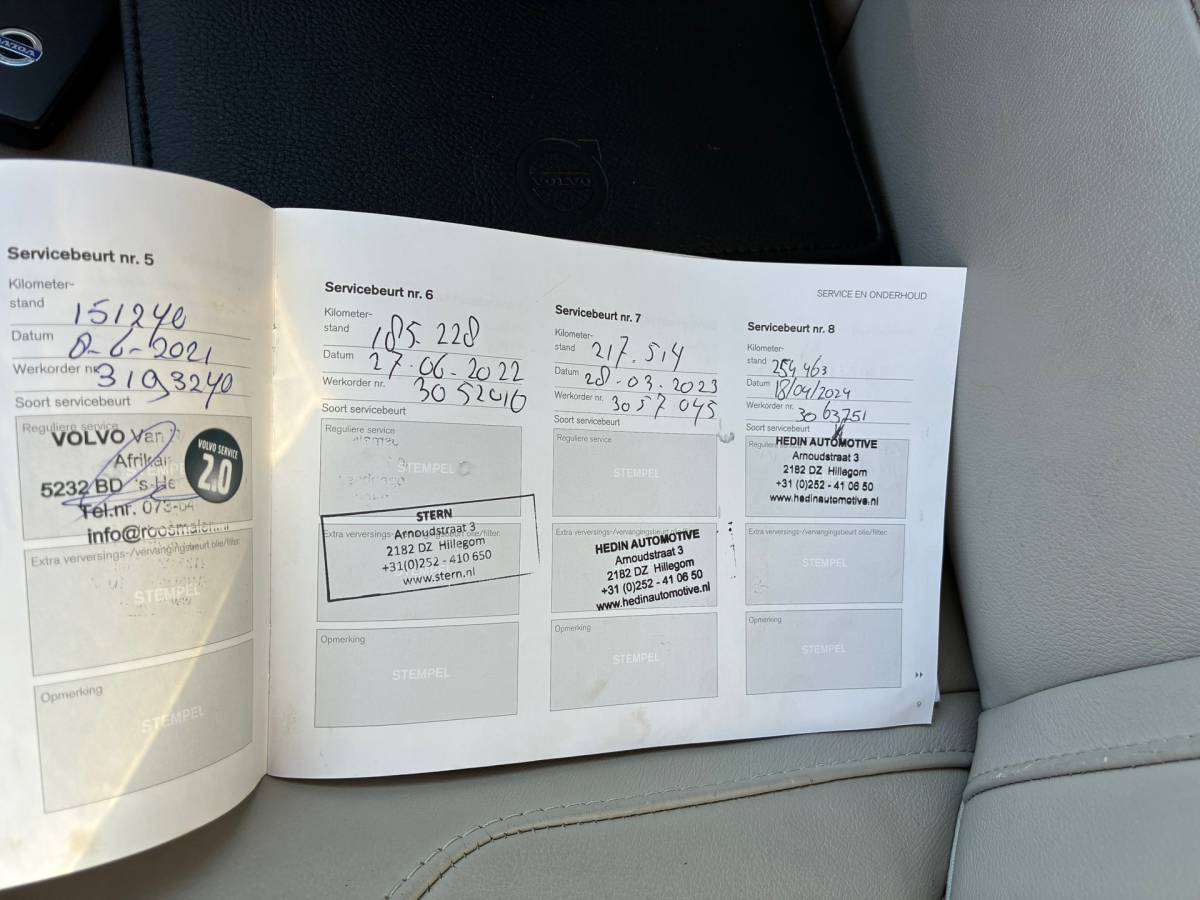 VOLVO
VOLVO
Servicebeurt nr. 5
Kilometer-
stand 151240
Datum 8-6-2021
Werkorder nr. 3193240
Soort servicebeurt
Reguliere service
VOLVO Van
Afrikaa
5232 BD 's-He
Tel.nr. 073-64
info@roosmalen.nl
VOLVO SERVICE
2.0
Extra verversings-/vervangingsbeurt olie/filter.
STEMPEL
Opmerking
STEMPEL
Servicebeurt nr. 6
Kilometer-
stand 185.228
Datum 27-06-2022
Werkorder nr. 3052010
Soort servicebeurt
Reguliere service
STEMPEL
Extra verversings-/vervangingsbeurt olie/filter.
STERN
Arnoudstraat 3
2182 DZ Hillegom
+31(0)252 - 410 650
www.stern.nl
Opmerking
STEMPEL
SERVICE EN ONDERHOUD
Servicebeurt nr. 7
Kilometer-
stand 217.514
Datum 28-03-2023
Werkorder nr. 3057045
Soort servicebeurt
Reguliere service
STEMPEL
Extra verversings-/vervangingsbeurt olie/filter.
HEDIN AUTOMOTIVE
Arnoudstraat 3
2182 DZ Hillegom
+31 (0)252 - 41 06 50
www.hedinautomotive.nl
Opmerking
STEMPEL
Servicebeurt nr. 8
Kilometer-
stand 254,463
Datum 18/04/2024
Werkorder nr. 3063751
Soort servicebeurt
Reguliere
HEDIN AUTOMOTIVE
Arnoudstraat 3
2182 DZ Hillegom
+31 (0)252 - 41 06 50
www.hedinautomotive.nl
Extra verversings-/vervangingsbeurt olie/filter.
STEMPEL
Opmerking
STEMPEL
9